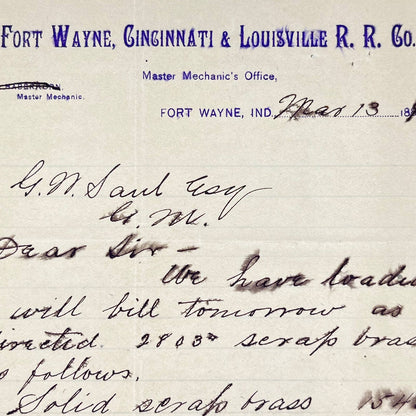 FORT WAYNE, CINCINNATI & LOUISVILLE R. R. CO.
Master Mechanic's Office,
Master Mechanic.
FORT WAYNE, IND. Mar 13 18
G. W. Saul Esq
G. M.
Dear Sir -
We have loaded
will bill tomorrow as
directed. 2803# scrap brass
as follows.
Solid scrap brass 154